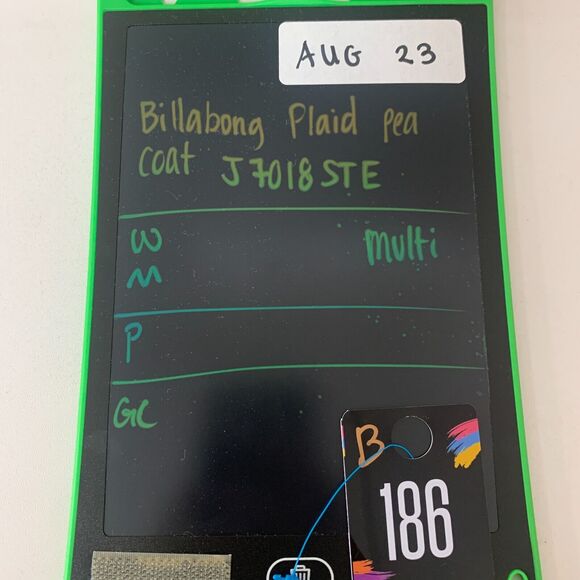 AUG 23
Billabong Plaid pea
coat J7018STE
W multi
M
P
GC
B
186